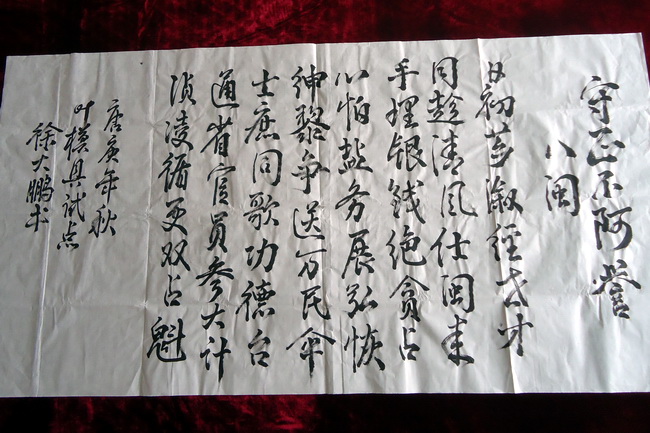 守正不阿誉
八闽
日初淑经世才
同趁清风仕闽来
手理银钱绝贪占
心怕盐务展弘恢
绅黎争送万民伞
士庶同歌功德台
通省官员参大计
浈凌循吏双占魁
年秋
叶模具试点
徐大鹏书